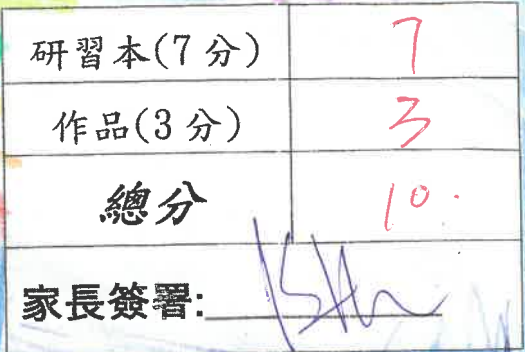 研習本(7分) 7
作品(3分) 3
總分 10.
家長簽署: